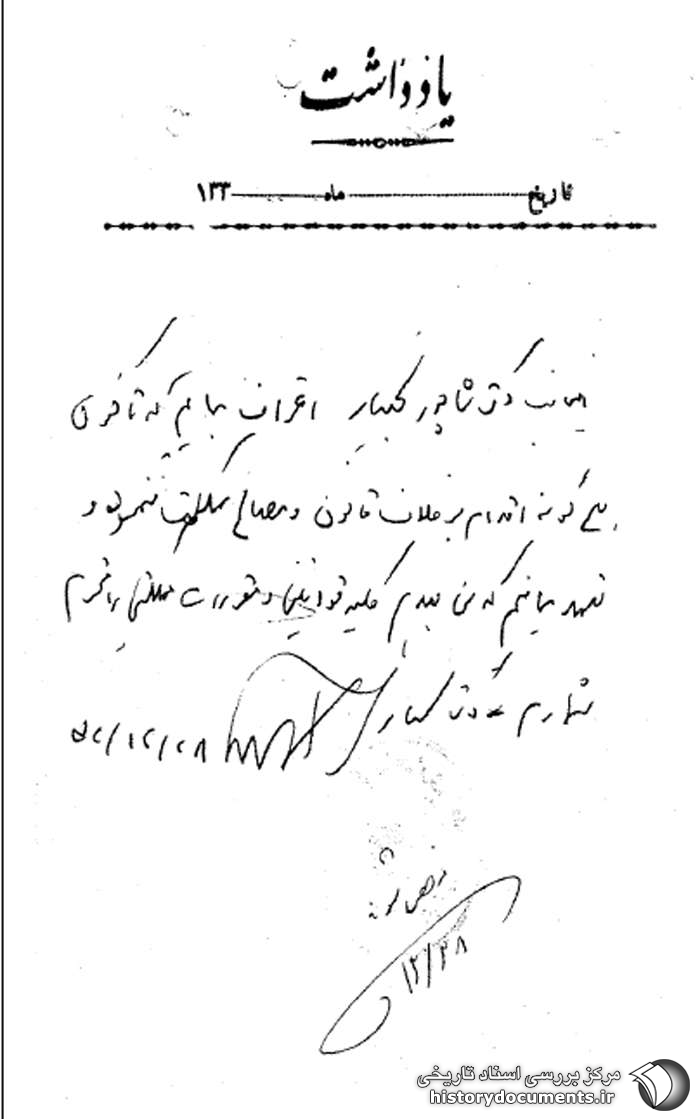 یادداشت
تاریخ ماه ۱۳۳
اینجانب دکتر شاپور بختیار اعتراف مینمایم که تاکنون
هیچ گونه اقدام بر خلاف قانون و مصالح مملکت ننموده و
تعهد مینمایم که من بعد هم کلیه قوانین و مقررات مملکتی را محترم
بشمارم دکتر بختیار ۵۲/۱۲/۲۸
مرخص شوند
۱۲/۲۸
مرکز بررسی اسناد تاریخی
historydocuments.ir